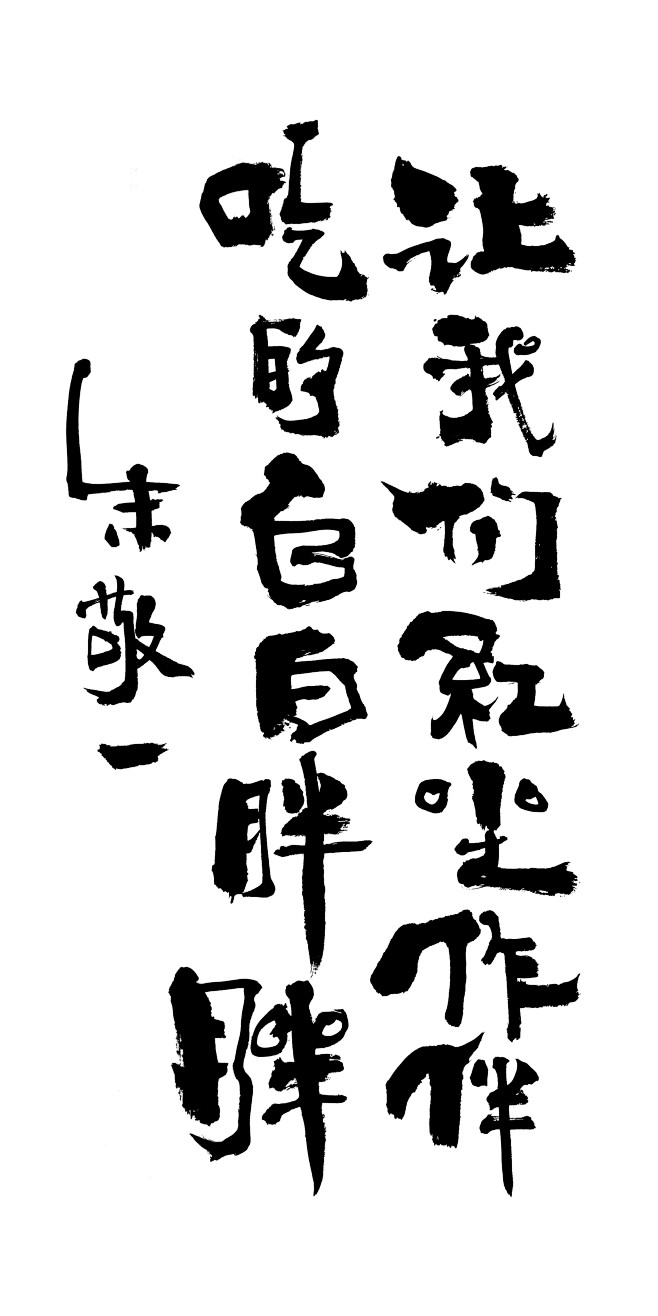 让我们红尘作伴
吃的白白胖胖
朱敬一